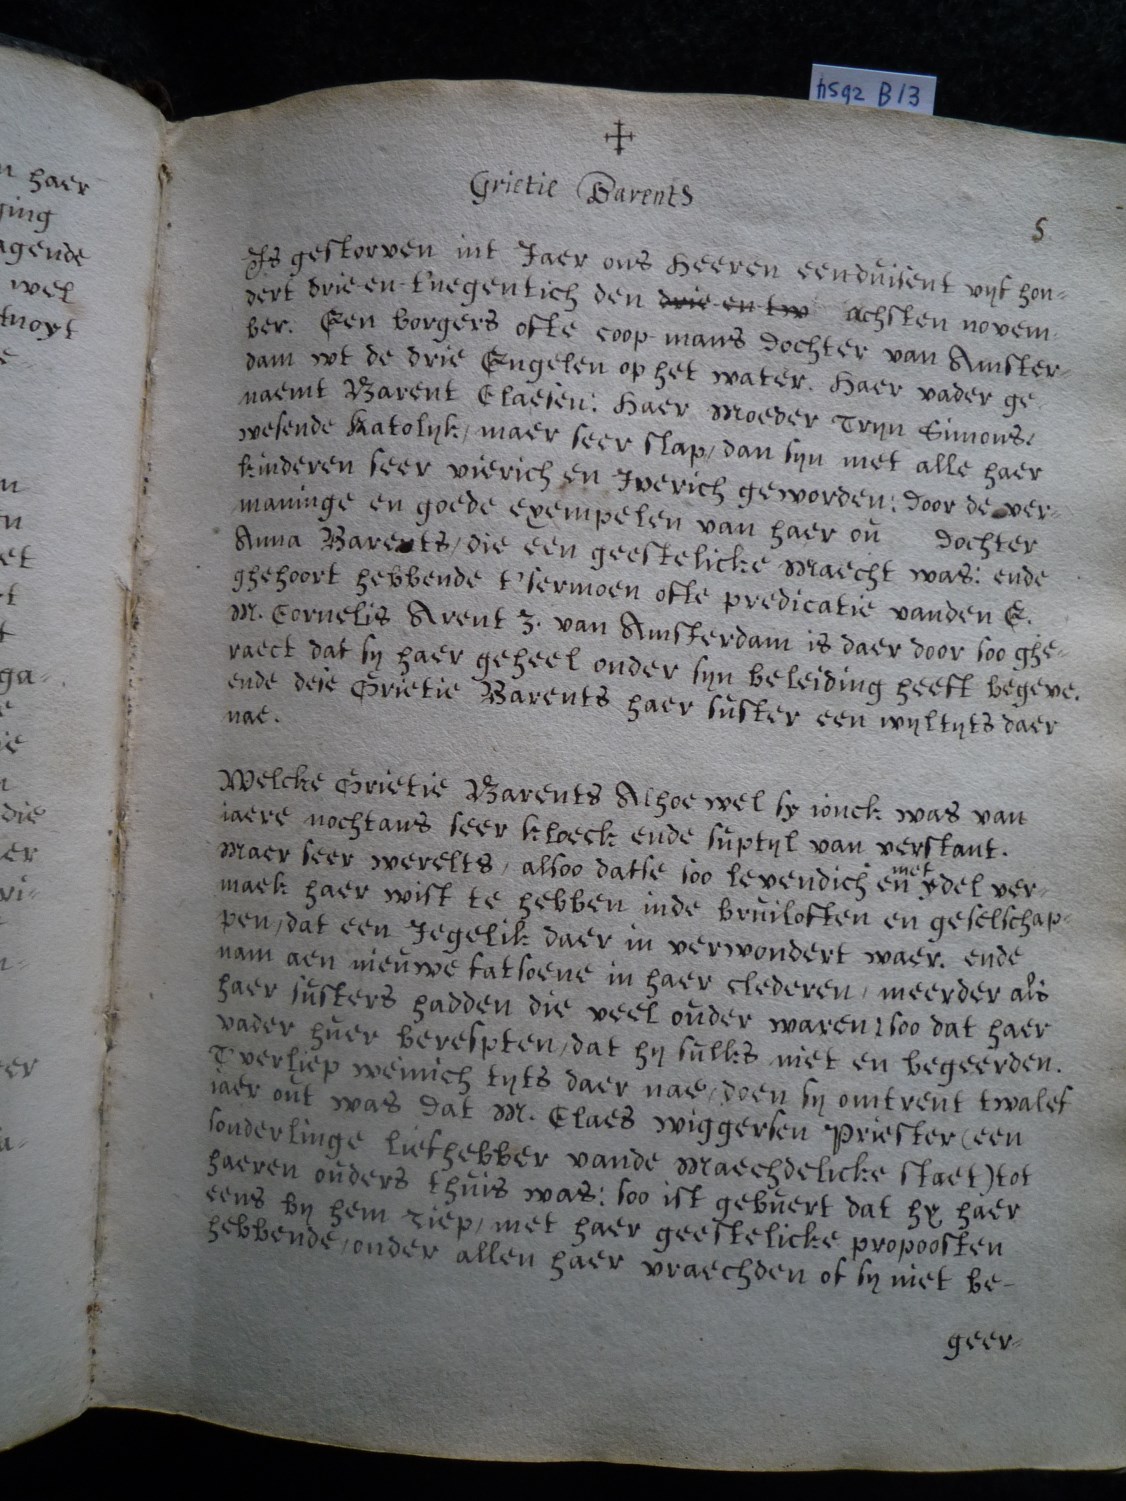 hs92 B13
Grietie Barents
5
Is gestorven int Iaer ons Heeren eenduisent vijf hon-
dert drie-en-t'negentich den drie en tw achsten novem-
ber. Een borgers ofte coop-mans dochter van Amster-
dam wt de drie Engelen op het water. Haer vader ge-
naemt Barent Claesen: Haer Moeder Tryn Simons:
wesende Katolyk, maer seer slap, dan syn met alle haer
kinderen seer vierich en Iverich geworden: door de ver-
maninge en goede exempelen van haer ou dochter
Anna Barents, die een geestelicke Maecht was: ende
ghehoort hebbende t'sermoen ofte predicatie vanden E.
M. Cornelis Arent Z. van Amsterdam is daer door soo ghe-
raect dat sy haer geheel onder syn beleiding heeft begeve.
ende dese Grietie Barents haer suster een wyltyts daer
nae.
Welcke Grietie Barents Alhoewel sy ionck was van
iaere nochtans seer kloeck ende suptyl van verstant.
Maer seer werelts, alsoo datse soo levendich en met ydel ver-
maek haer wist te hebben inde bruiloften en geselschap-
pen, dat een Iegelik daer in verwondert waer. ende
nam aen nieuwe fatsoene in haer clederen, meerder als
haer susters hadden die veel ouder waren: soo dat haer
vader huer berespten, dat hy sulks niet en begeerden.
T'verliep weinich tyts daer nae, doen sy omtrent twalef
iaer out was dat M. Claes wiggersen Priester (een
sonderlinge liefhebber vande Maechdelicke staet) tot
haeren ouders thuis was: soo ist gebuert dat hy haer
eens by hem riep, met haer geestelicke propoosten
hebbende, onder allen haer vraechden of sy niet be-
geer-
n haer
ging
agende
wel
tnoyt
e
n
en
et
t
t
ga-
e
ie
n
die
er
ri-
n-
eer
a-